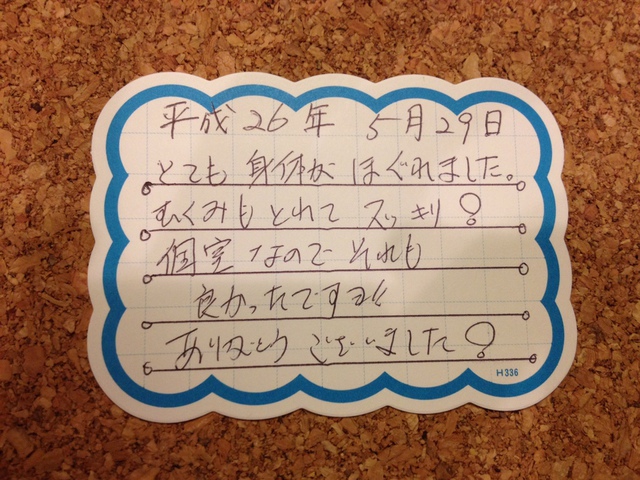 平成26年 5月29日
とても 身体が ほぐれました。
むくみも とれて スッキリ!
個室なので それも
良かったですョ!!
ありがとう ございました!
H336